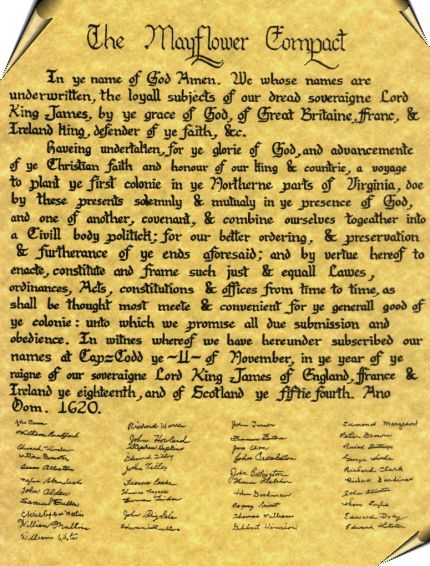 The Mayflower Compact
In ye name of God Amen. We whose names are
underwritten, the loyall subjects of our dread soveraigne Lord
King James, by ye grace of God, of Great Britaine, ffranc, &
Ireland king, defender of ye faith, &c.
Haveing undertaken, for ye glorie of God, and advancemente
of ye Christian faith and honour of our king & countrie, a voyage
to plant ye first colonie in ye Northerne parts of Virginia, doe
by these presents solemnly & mutualy in ye presence of God,
and one of another, covenant, & combine ourselves togeather into
a Civill body politick; for our better ordering, & preservation
& furtherance of ye ends aforesaid; and by vertue hereof to
enacte, constitute and frame such just & equall Lawes,
ordinances, Acts, constitutions & offices from time to time, as
shall be thought most meete & convenient for ye generall good of
ye colonie: unto which we promise all due submission and
obedience. In witnes whereof we have hereunder subscribed our
names at Cap=Codd ye ~11~ of November, in ye year of ye
raigne of our soveraigne Lord King James of England, ffrance &
Ireland ye eighteenth, and of Scotland ye fiftie fourth. Ano
Dom. 1620.
William Bradford Richard Warren John Turner
John Howland Peter Brown
Edward Winslow Stephen Hopkins
Isaac Allerton John Tilley Richard Clark
John Alden John Allerton
John Billington
Samuel Fuller Thomas Tinker John Goodman
Thomas Williams Edward Doty
William Mullins
William White